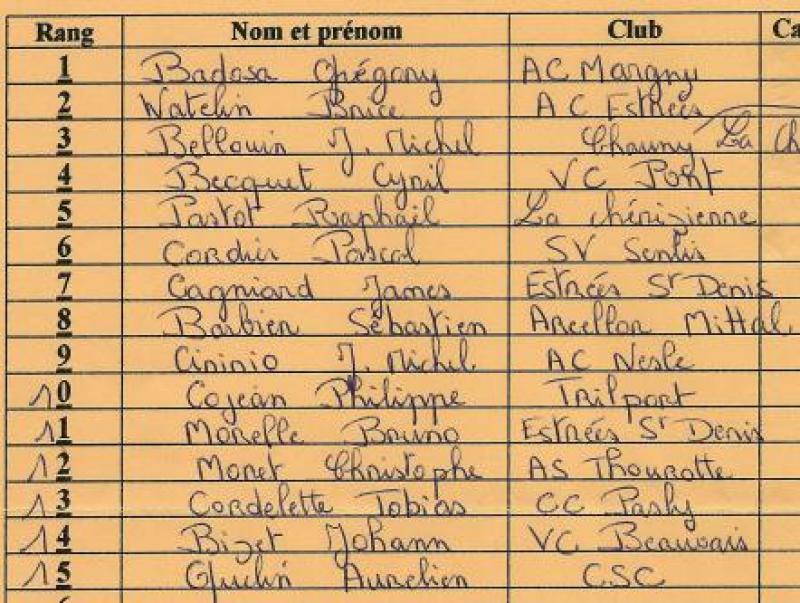 Rang Nom et prénom Club Ca
1 Badosa Grégory AC Margny
2 Watelin Brice AC Estrées
3 Bellouin J. Michel Chauny La Ch
4 Becquet Cyril VC Pont
5 Pastot Raphaël La chérizienne
6 Cordier Pascal SV Senlis
7 Cagniard James Estrées St Denis
8 Barbier Sébastien Arcellor Mittal
9 Cininio J. Michel AC Nesle
10 Cojean Philippe Trilport
11 Morelle Bruno Estrées St Denis
12 Moret Christophe AS Thourotte
13 Cordelette Tobias CC Pasly
14 Bizet Johann VC Beauvais
15 Aurelien CSC